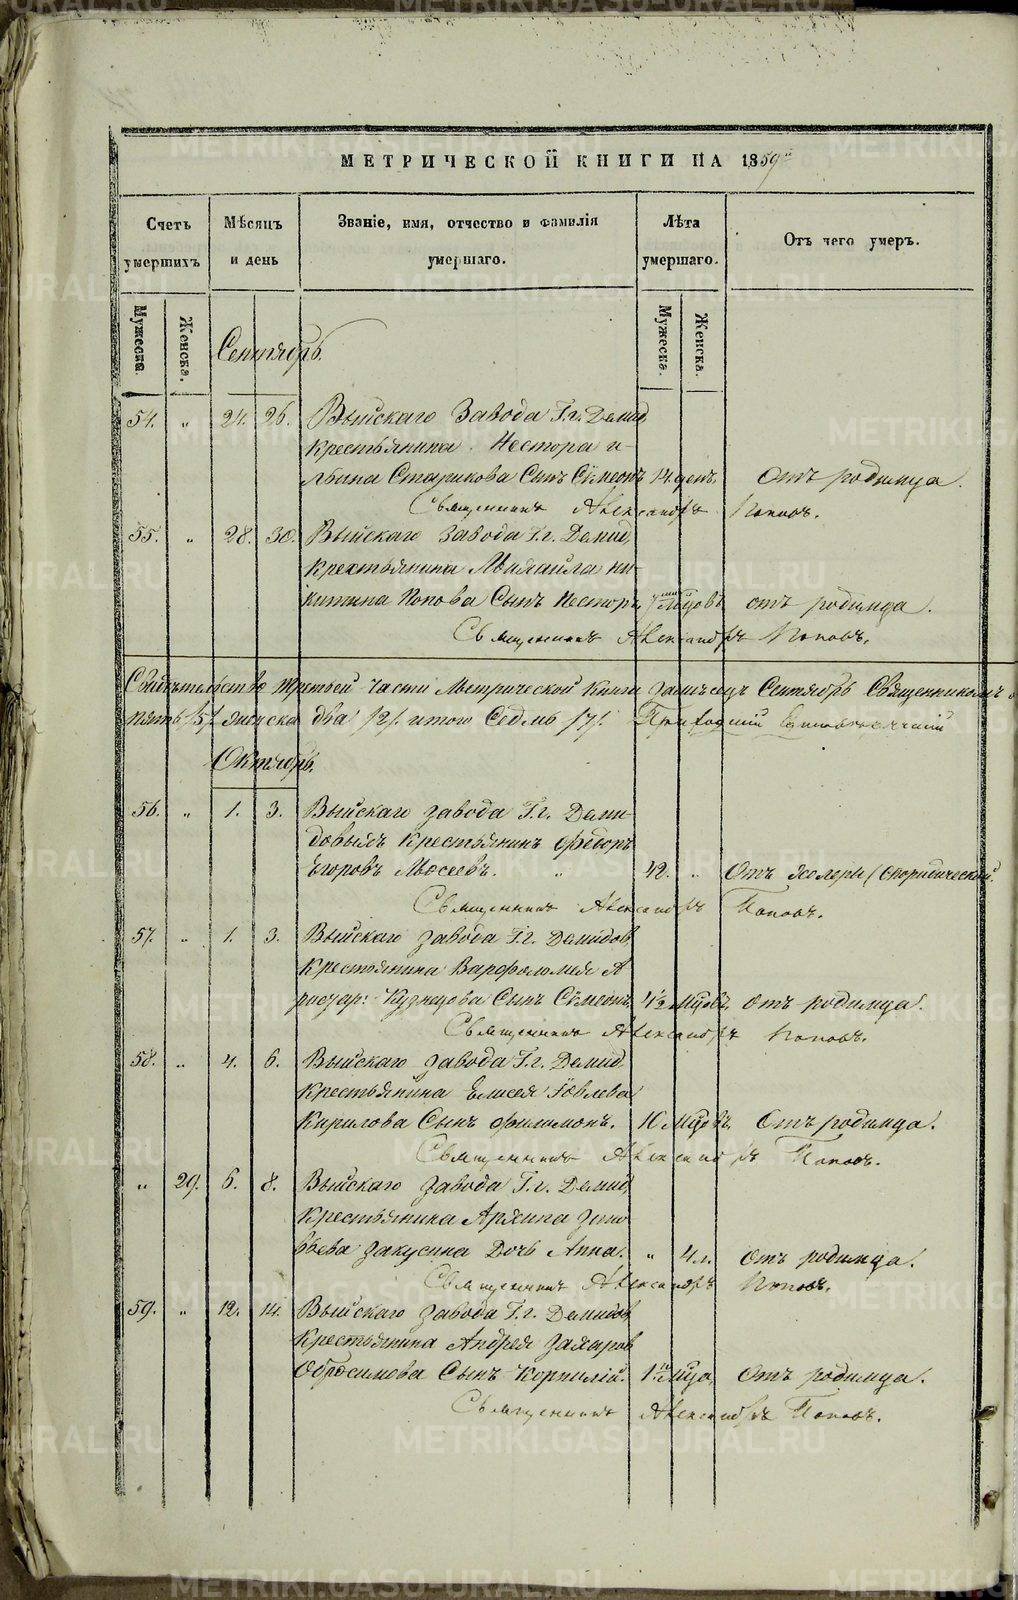 МЕТРИЧЕСКОЙ КНИГИ НА 1859й
Счетъ умершихъ
Мѣсяцъ и день
Званіе, имя, отчество и фамилія умершаго.
Лѣта умершаго.
Отъ чего умеръ.
Мужеска.
Женска.
Мужеска.
Женска.
Сентябрь.
54. " 24. 26. Выйскаго Завода Г.г. Демид.
Крестьянина Нестора и-
льина Старикова Сынъ Сѵмеонъ 14. ден. Отъ родимца.
Священникъ Александръ Поповъ.
55. " 28. 30. Выйскаго Завода Г.г. Демид.
Крестьянина Михаила ни
китина Попова Сынъ Несторъ, 7ми мцовъ отъ родимца.
Священникъ Александръ Поповъ.
Свидѣтельство третьей части Метрической Книги за мѣсяцъ Сентябрь Священникомъ
пять /5/ женска два /2/ итого Седмь /7/.
Октябрь.
56. " 1. 3. Выйскаго завода Г.г. Деми-
довыхъ Крестьянинъ Ѳедоръ
Егоровъ Мосеевъ. " 42. " Отъ холеры спорадической.
Священникъ Александръ Поповъ.
57. " 1. 3. Выйскаго завода Г.г. Демидов.
Крестьянина Варфоломея А
Кузнецова Сынъ Сѵмеонъ, 4½ мцовъ, отъ родимца.
Священникъ Александръ Поповъ.
58. " 4. 6. Выйскаго завода Г.г. Демид.
Крестьянина Елисея Іовлева
Кирилова Сынъ Филимонъ. 10 мцовъ, Отъ родимца.
Священникъ Александръ Поповъ.
" 29. 6. 8. Выйскаго завода Г.г. Демид.
Крестьянина Архипа Зино
вьева Закусина Дочь Анна. " 4 л. Отъ родимца.
Священникъ Александръ Поповъ.
59. " 12. 14. Выйскаго завода Г.г. Демидов.
Крестьянина Андрея Захаров
Обросимова Сынъ Корнилій. 1го мца, Отъ родимца.
Священникъ Александръ Поповъ.
METRIKI.GASO-URAL.RU